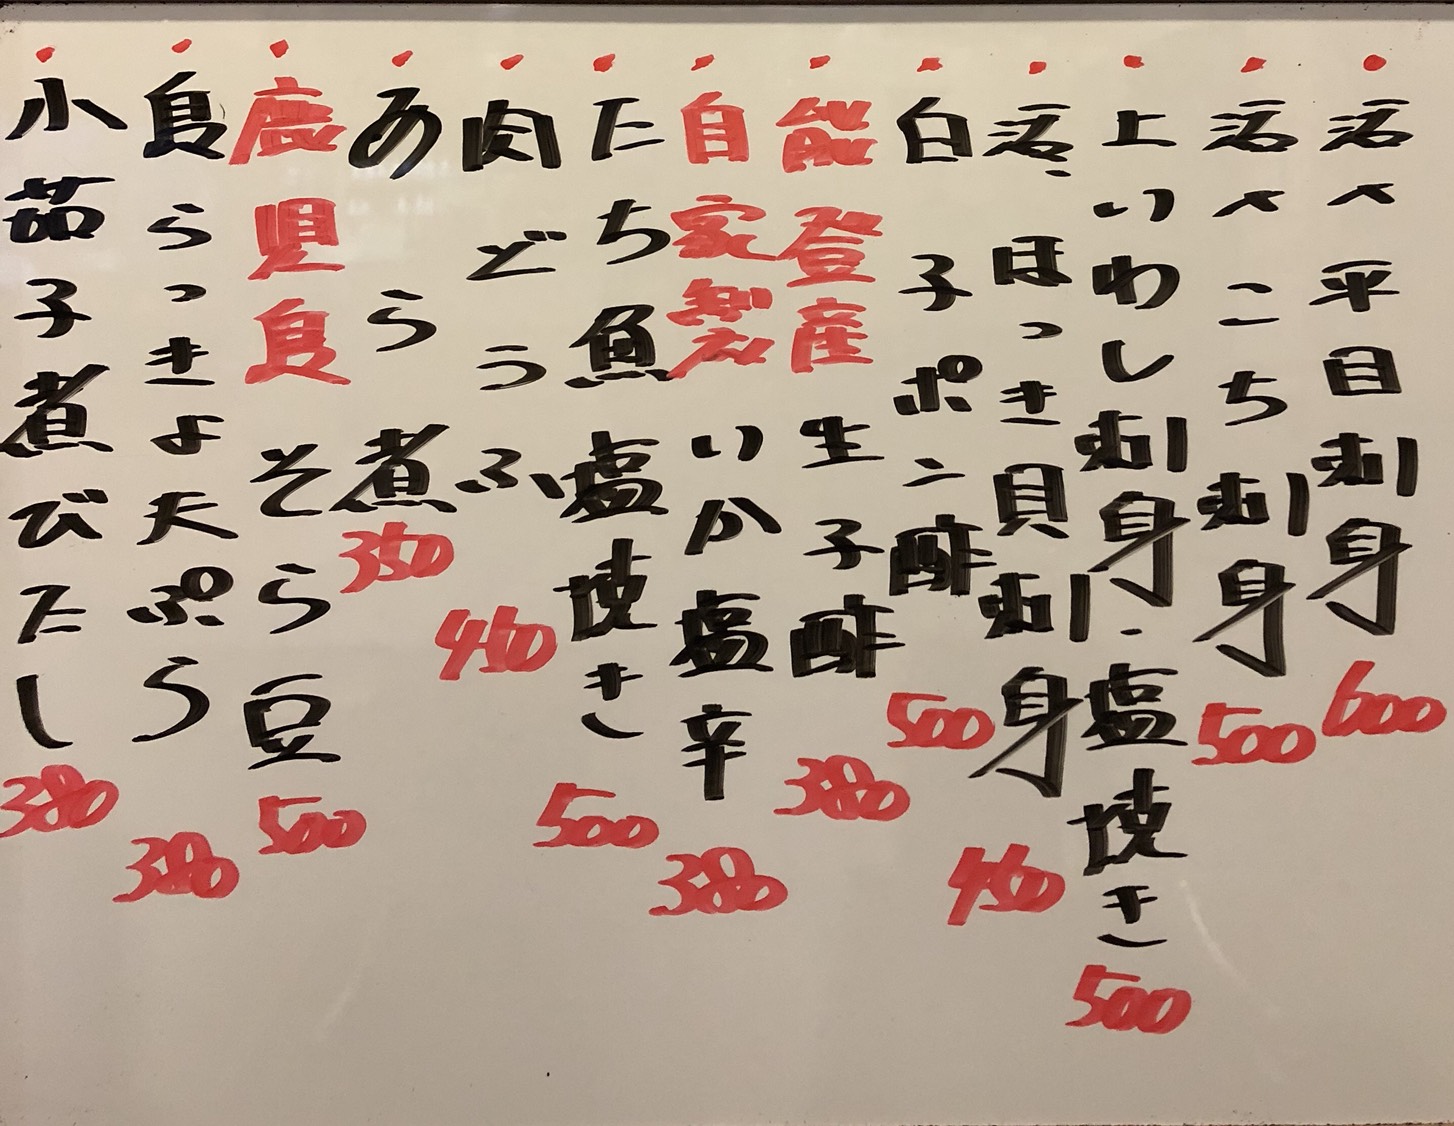 ・活〆平目刺身 600
・活〆こち刺身 500
・上いわし刺身・塩焼き 500
・活、ほっき貝刺身 450
・白子ポン酢 500
・能登産 生子酢 380
・自家製 いか塩辛 380
・たち魚塩焼き 500
・肉どうふ 450
・あら煮 350
・鹿児島そら豆 500
・島らっきょ天ぷら 380
・小茄子煮びたし 380